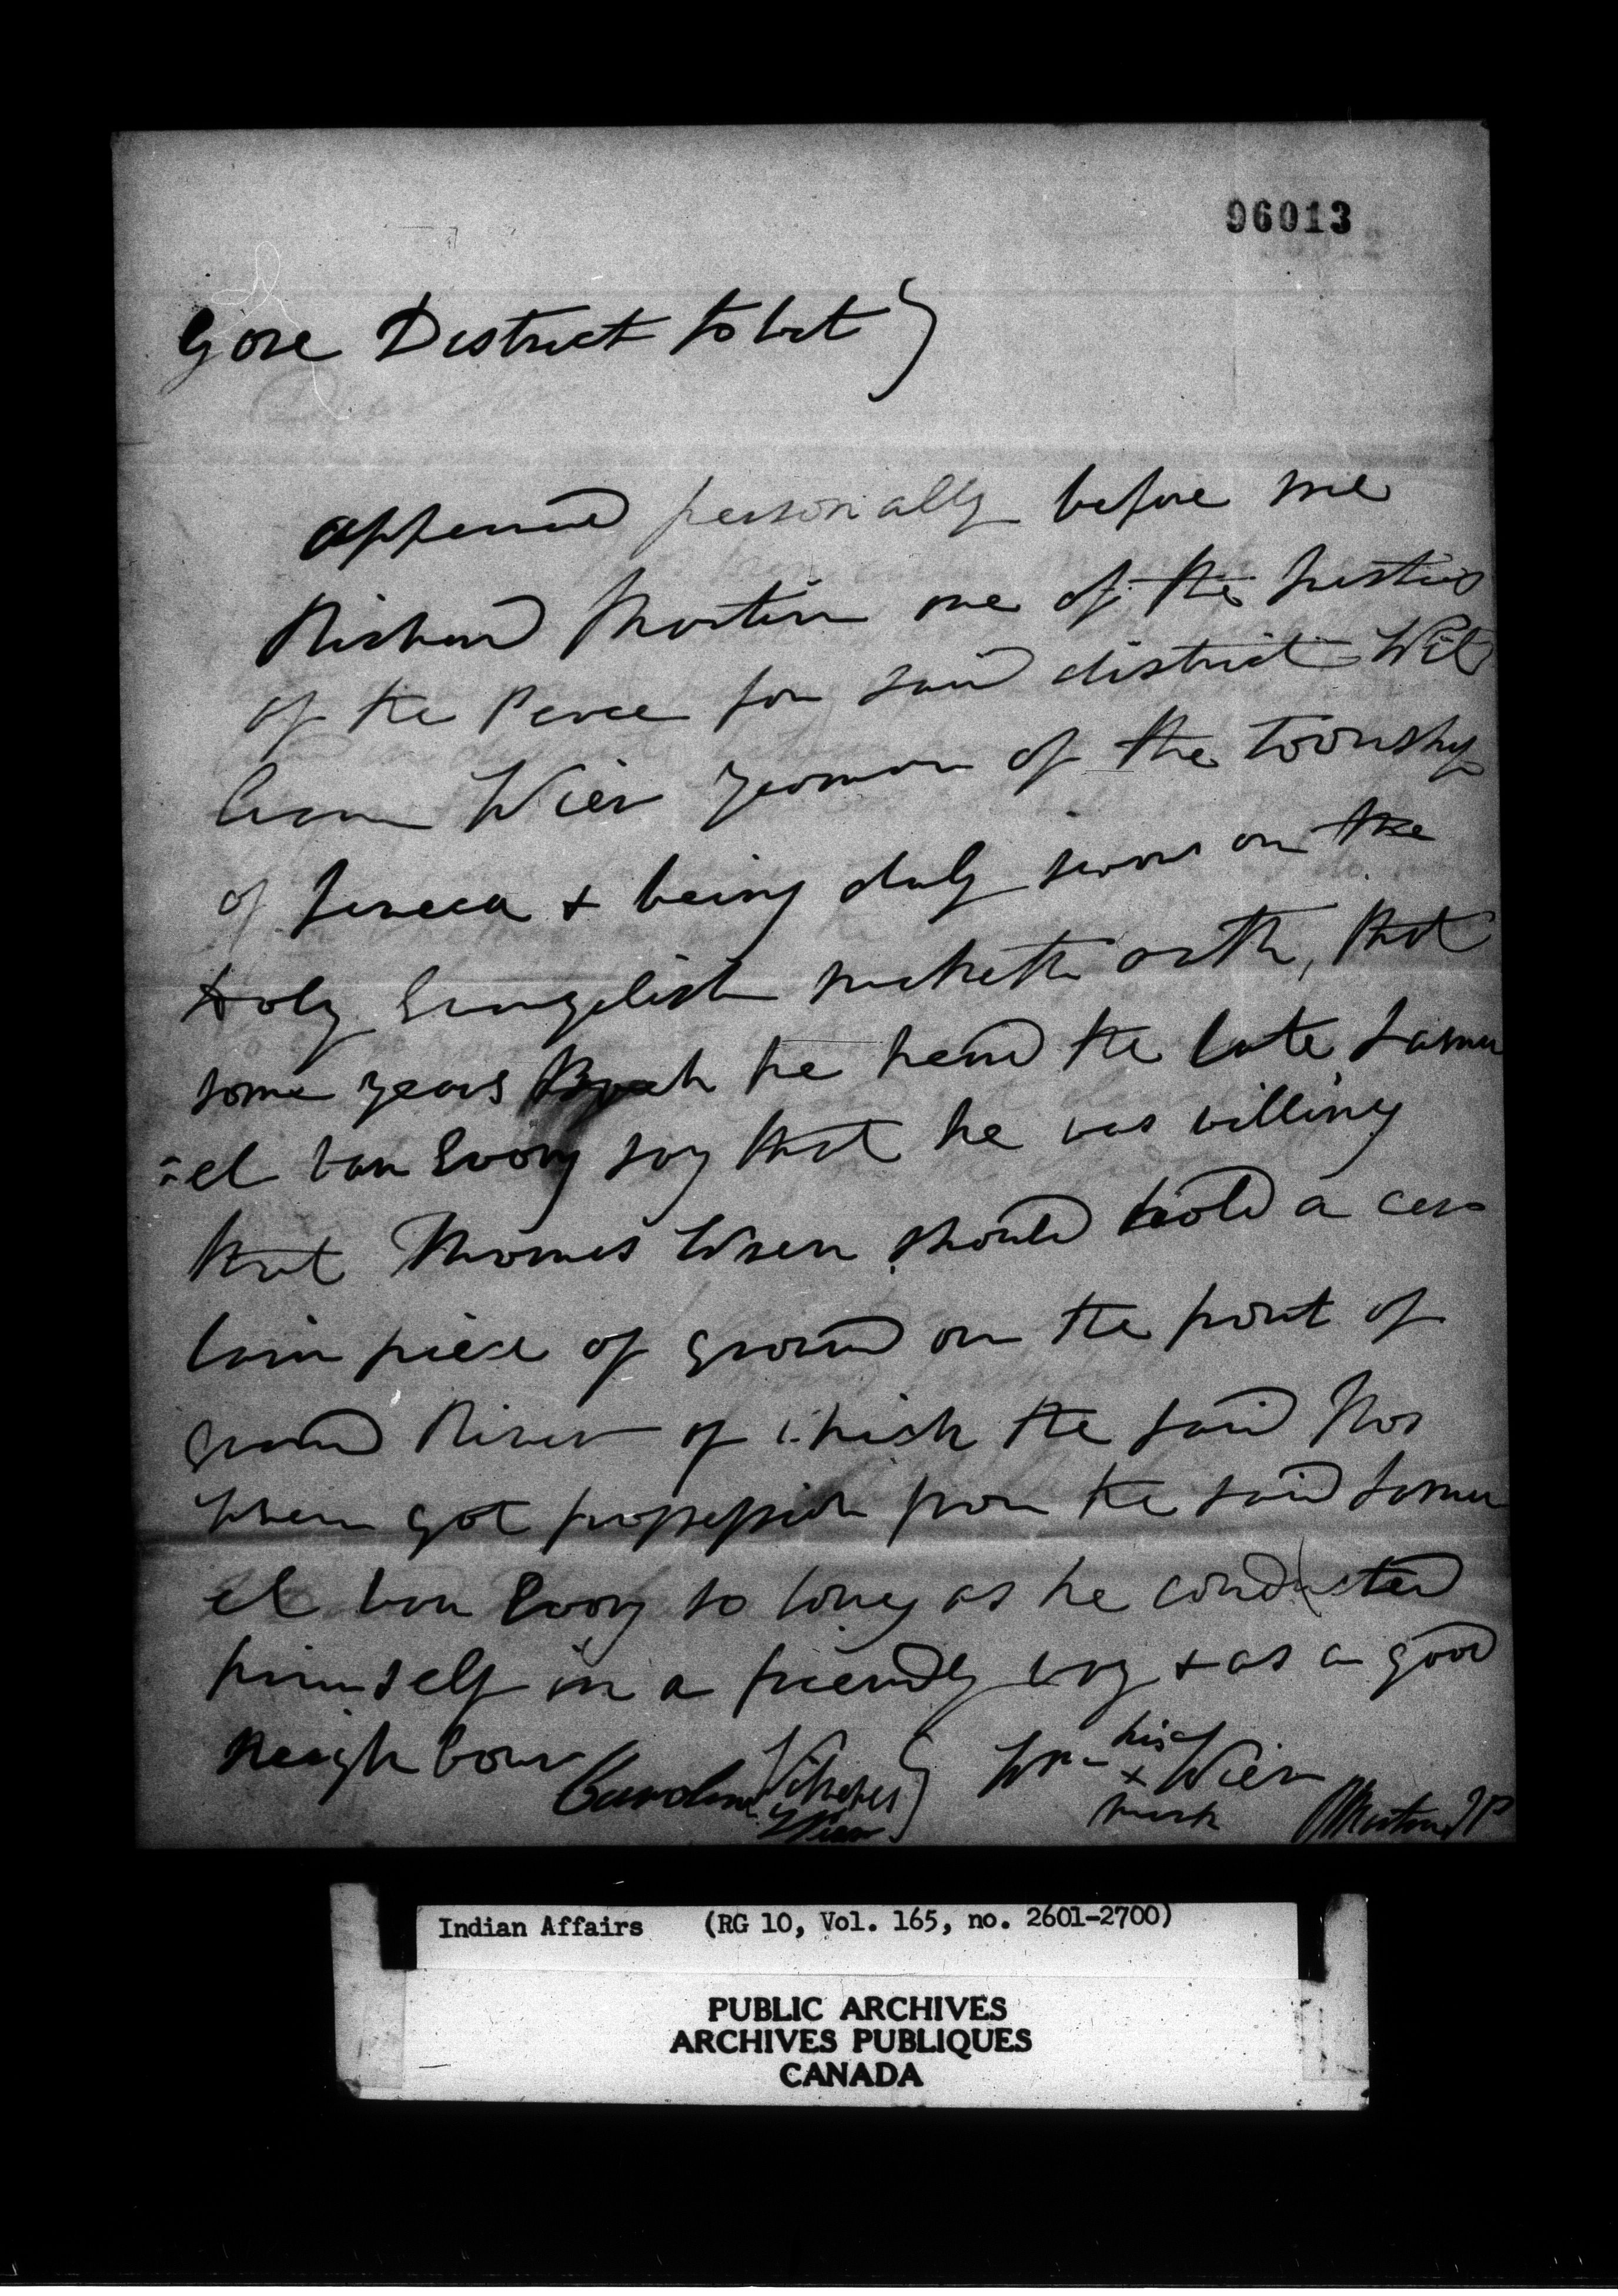 96013
Gore District to wit }
appeared personally before me
Richard Martin one of the Justices
of the Peace for said district Wil
liam Wier yeoman of the township
of Seneca & being duly sworn on the
Holy Evangelists maketh oath, that
some years he heard the late Samu
=el Van Every say that he was willing
that Thomas Wren should hold a cer
tain piece of ground on the front of
Grand River of which the said Thos
Wren got possession from the said Samu
el Van Every so long as he conducted
himself in a friendly way & as a good
Neighbour
his
Wm x Wier
mark
RMartin JP
Indian Affairs (RG 10, Vol. 165, no. 2601-2700)
PUBLIC ARCHIVES
ARCHIVES PUBLIQUES
CANADA